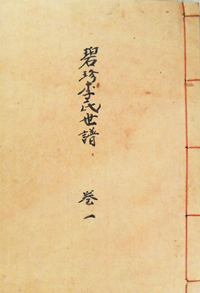 碧珍李氏世譜 卷一